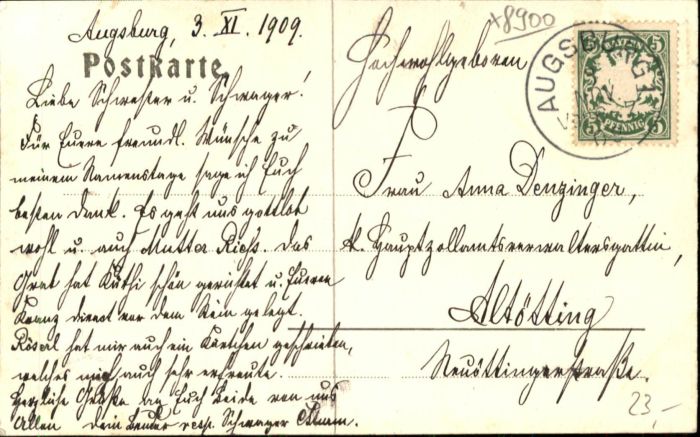 Augsburg, 3. XI. 1909.
Postkarte
Liebe Schwester u. Schwager!
Für Euere freundl. Wünsche zu
meinem Namenstage sage ich Euch
besten Dank. Es geht uns gottlob
wohl u. auch Mutter Riess. Das
Grab hat Käthi schön gerichtet u. Eueren
Kranz direct vor dem Stein gelegt.
Roserl hat mir auch ein Kärtchen geschrieben,
welches mich auch sehr erfreute.
Herzliche Grüße an Euch Beide von uns
Allen Dein Bruder resp. Schwager
x8900
Hochwohlgeboren
Frau Anna Denzinger,
k. Hauptzollamtsverwaltersgattin,
Altötting
Neuöttingerstraße.
AUGSBURG 1
5 5
5 PFENNIG 5
23,-